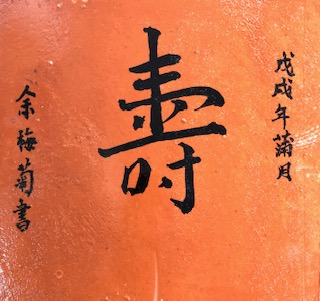 戊戌年蒲月
壽
余梅菊書